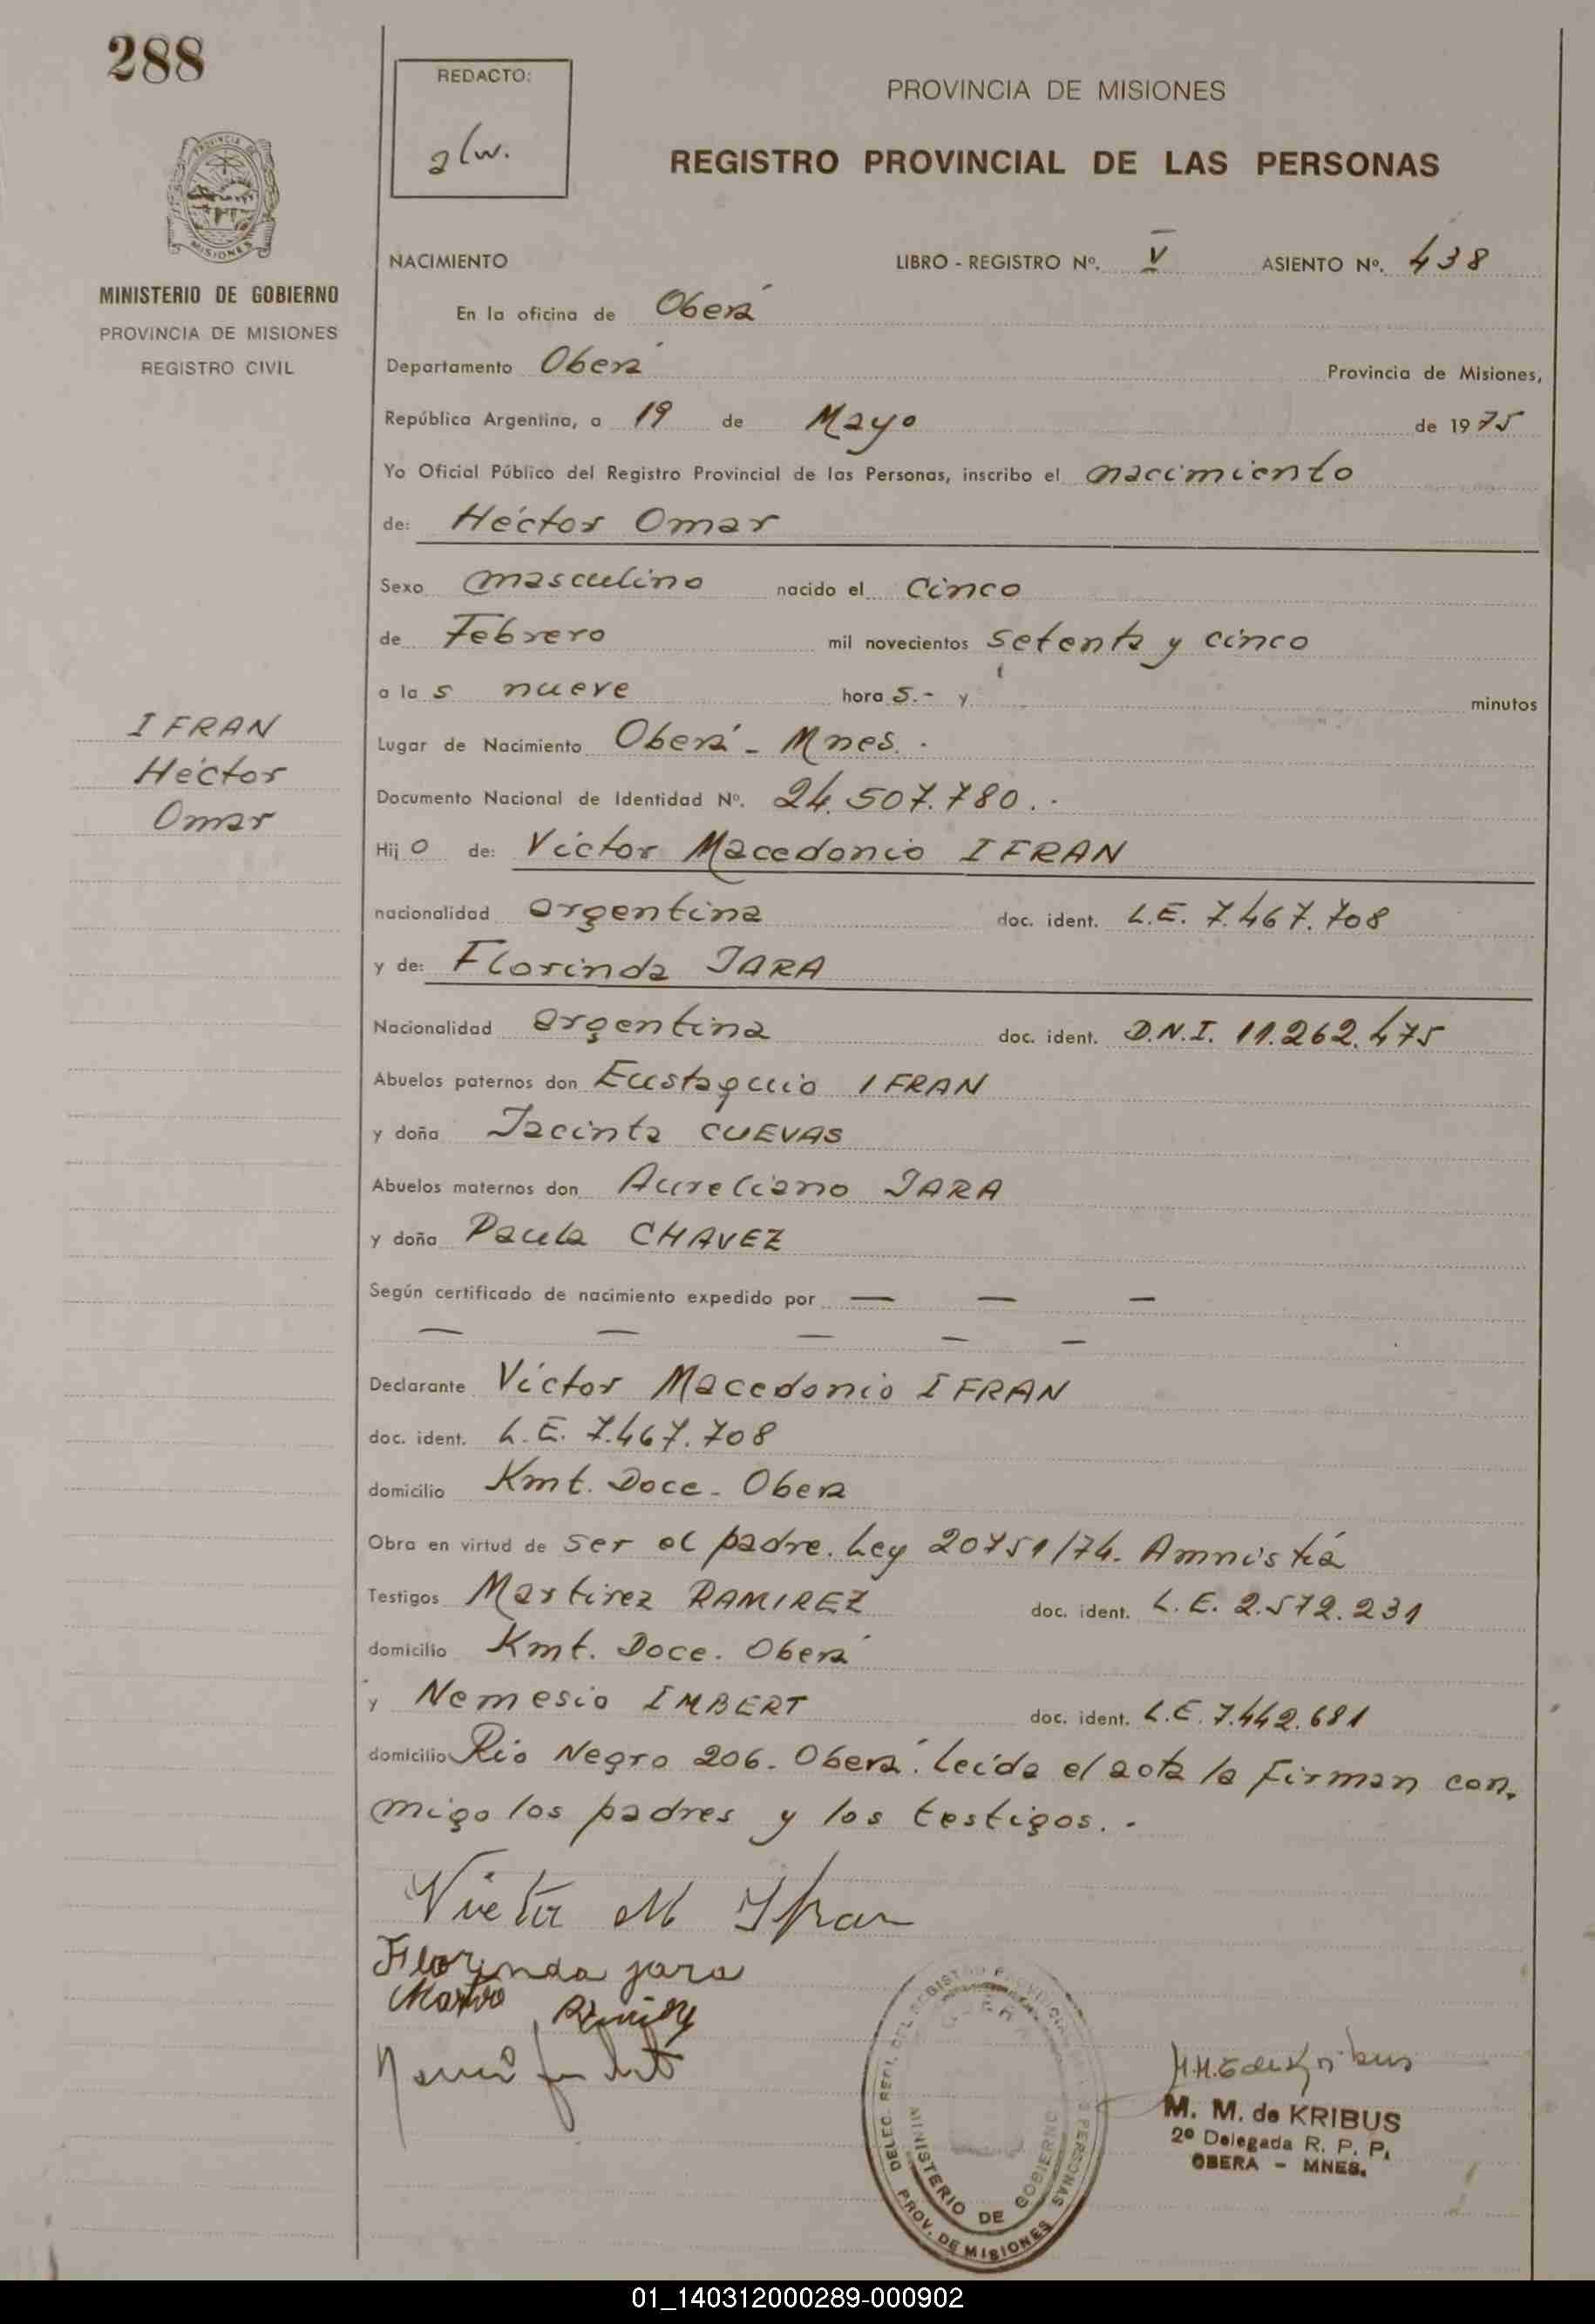 288
REDACTO:
alw.
PROVINCIA DE MISIONES
REGISTRO PROVINCIAL DE LAS PERSONAS
PROVINCIA DE
MISIONES
MINISTERIO DE GOBIERNO
PROVINCIA DE MISIONES
REGISTRO CIVIL
NACIMIENTO LIBRO - REGISTRO Nº. V ASIENTO Nº. 438
En la oficina de Oberá
Departamento Oberá Provincia de Misiones,
República Argentina, a 19 de Mayo de 1975
Yo Oficial Público del Registro Provincial de las Personas, inscribo el nacimiento
de: Héctor Omar
Sexo masculino nacido el Cinco
de Febrero mil novecientos setenta y cinco
a las nueve horas.- y minutos
IFRAN
Héctor
Omar
Lugar de Nacimiento Oberá - Mnes.
Documento Nacional de Identidad Nº. 24.507.780.-
Hijo de: Víctor Macedonio IFRAN
nacionalidad argentina doc. ident. L.E. 7.467.708
y de: Florinda JARA
Nacionalidad argentina doc. ident. D.N.I. 11.262.475
Abuelos paternos don Eustaquio IFRAN
y doña Jacinta CUEVAS
Abuelos maternos don Aureliano JARA
y doña Paula CHAVEZ
Según certificado de nacimiento expedido por — — —
— — — — —
Declarante Víctor Macedonio IFRAN
doc. ident. L.E. 7.467.708
domicilio Kmt. Doce - Obera
Obra en virtud de ser el padre. Ley 20751/74. Amnistía
Testigos Martirez RAMIREZ doc. ident. L.E. 2.572.231
domicilio Kmt. Doce. Oberá
y Nemesio IMBERT doc. ident. L.E. 7.442.681
domicilio Rio Negro 206. Oberá. Leída el acta la firman con,
migo los padres y los testigos. -
Victor M Ifran
Florinda jara
DELEG. REGL. DEL REGISTRO PROVINCIAL DE LAS PERSONAS
MINISTERIO DE GOBIERNO
PROV. DE MISIONES
M. M. de KRIBUS
2º Delegada R. P. P.
OBERA - MNES.
01_140312000289-000902